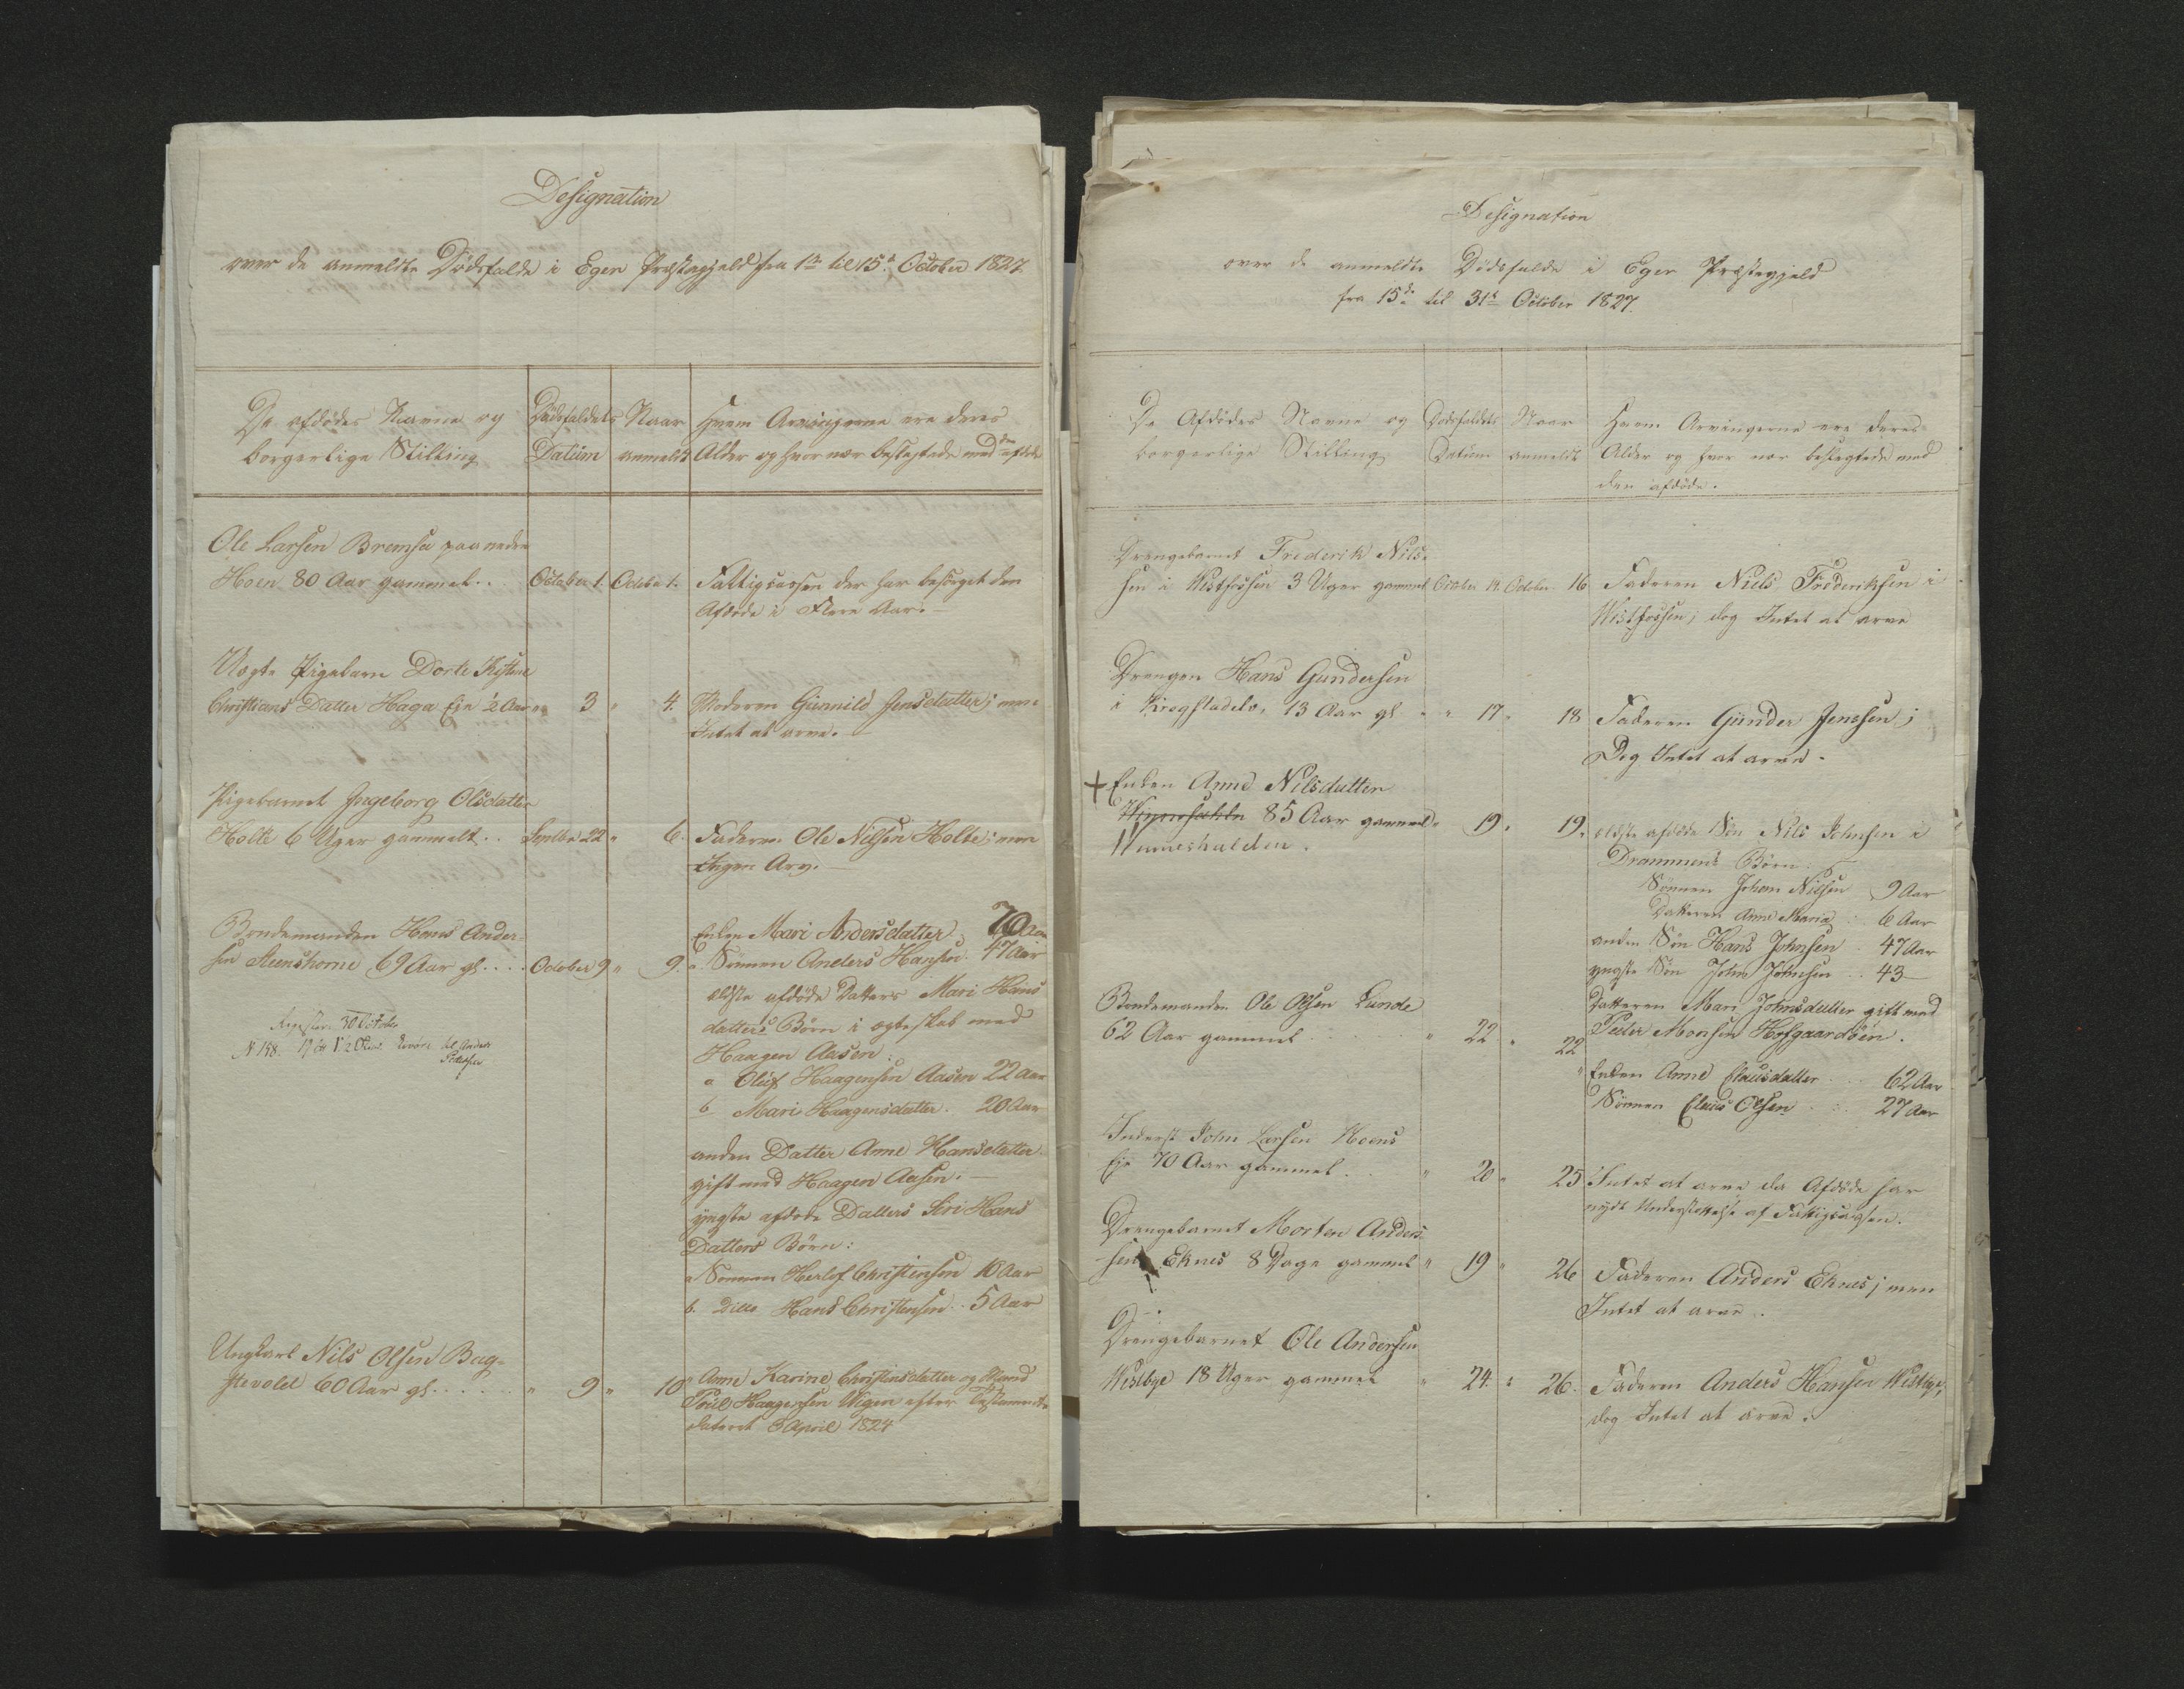 Designation
over de anmeldte Dødsfalde i Eger Præstegjeld fra 1ste til 15de October 1827.
De afdødes Navne og
borgerlige Stilling
Dødsfaldets
Datum
Naar
anmeldt
Hvem Arvingerne ere deres
Alder og hvor nær beslægtede med den afdøde
Ole Larsen Bremsa paa nedre
Hoen 80 Aar gammel..
October 1. October 1.
Fattigcassen der har besørget den
Afdøde i Flere Aar.
Uægte Pigebarn Dorte Kistine
Christians Datter Haga Eje ½ Aar
" 3 " 4.
Moderen Gunnild Jensdatter; men
Intet at arve.
Pigebarnet Ingeborg Olsdatter
Holte 6 Uger gammelt..
Septbr 22 " 6.
Faderen Ole Nilsen Holte; men
Ingen Arv.
Bondemanden Hans Ander-
sen Steenshorne 69 Aar gl....
October 9 " 9.
Enken Mari Andersdatter 70 Aar
a. Sønnen Anders Hansen. 47 Aar
ældste afdøde Datters Mari Hans
datters Børn i ægteskab med
Haagen Aasen:
a Oluf Haagensen Aasen 22 Aar
b Mari Haagensdatter. 20 Aar
anden Datter Anne Hansdatter
gift med Haagen Aasen.
yngste afdøde Datters Siri Hans
Datters Børn:
a Sønnen Herlof Christensen 10 Aar
b. Ditto Hans Christensen.. 5 Aar
Register. 30 October
N 198.
Anders
Ungkarl Nils Olsen Bag-
stevolel 60 Aar gl.....
" 9 " 10
Anne Karine Christensdatter og Mand
Poul Haagensen Wigen efter Testamente
dateret 3 April 1824
Designation
over de anmeldte Dødsfalde i Eger Præstegjeld
fra 15de til 31te October 1827.
De Afdødes Navne og
borgerlige Stilling
Dødsfaldets
Datum
Naar
anmeldt
Hvem Arvingerne ere deres
Alder og hvor nær beslægtede med
den afdøde.
Drengebarnet Frederik Nils-
sen i Wistfossen 3 Uger gammel
October 14. October 16
Faderen Niels Frederiksen i
Wistfossen, dog Intet at arve
Drengen Hans Gundersen
i Krogstadelv. 13 Aar gl.
" 17 " 18
Faderen Gunder Jenssen;
Dog Intet at arve.
+ Enken Anne Nilsdatter
85 Aar gammel
Wurneshalden.
19. 19.
ældste afdøde Søn Nils Johnsen i
Drammens Børn:
Sønnen Johan Nilsen 9 Aar
Datteren Anne Maria : 6 Aar
anden Søn Hans Johnsen. 47 Aar
yngste Søn John Johnsen.. 43 —
Datteren Mari Johnsdatter gift med
Peder Monsen Hofgaardøen.
Bondemanden Ole Olsen Lunde
62 Aar gammel
" 22 " 22
" Enken Anne Clausdatter... 62 Aar
Sønnen Claus Olsen... 27 Aar
Inderst John Larsen Hoens
Eje 70 Aar gammel.
" 20 " 25
Intet at arve da Afdøde har
nydt Understøttelse af Fattigcassen.
Drengebarnet Morten Anders
sen Eknes 8 Dage gammel
" 19 " 26
Faderen Anders Eknes; men
Intet at arve.
Drengebarnet Ole Andersen
Wistbye 18 Uger gammel
" 24. " 26.
Faderen Anders Hansen Wistbye,
dog Intet at arve.